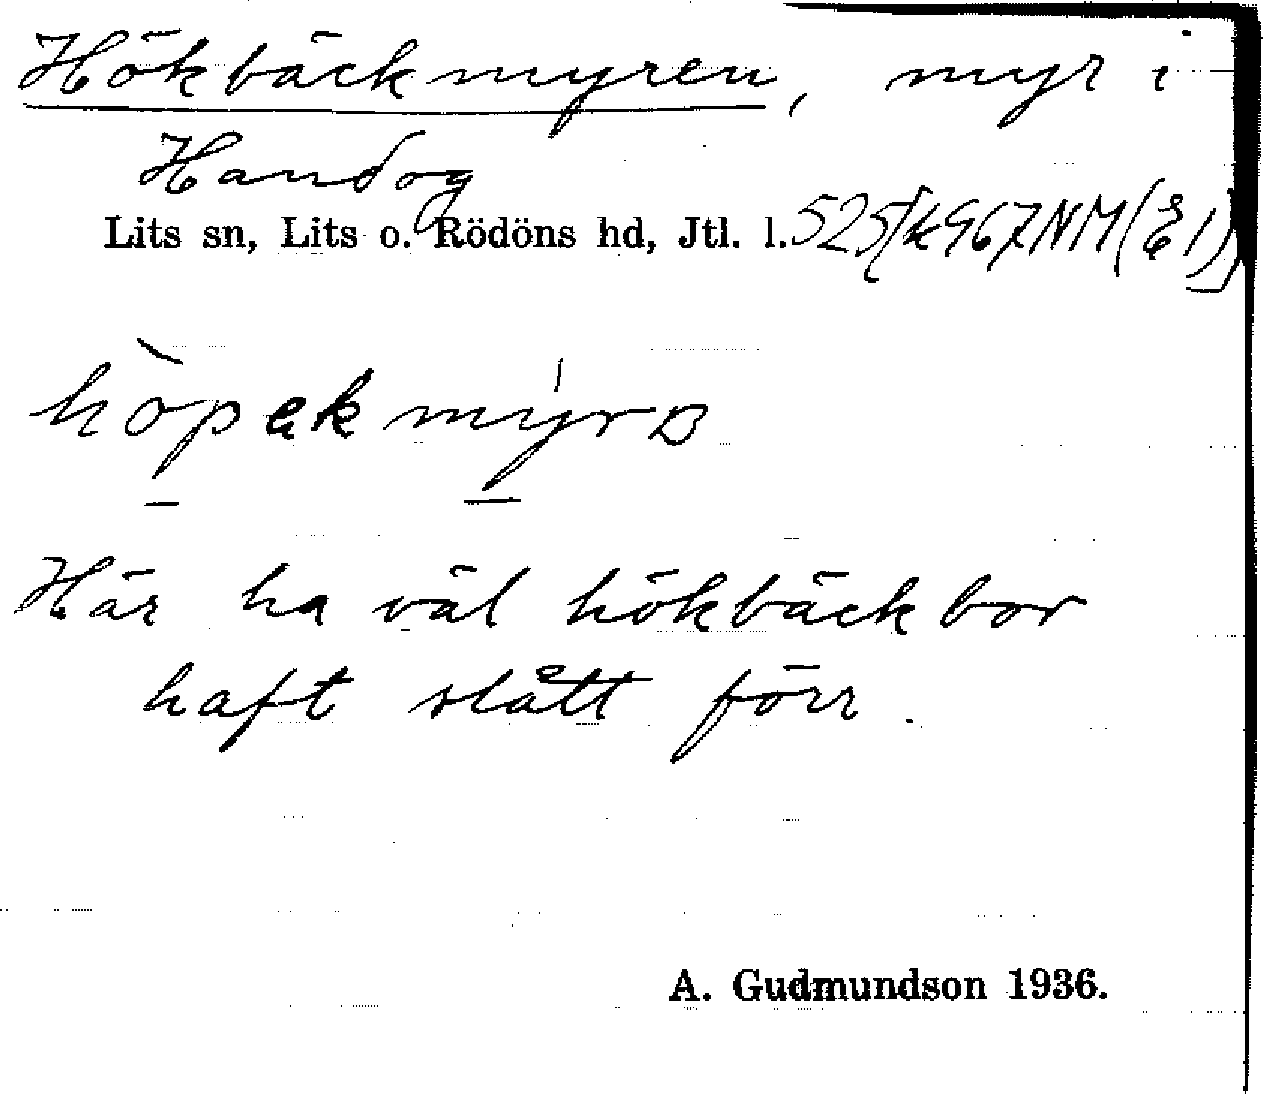 Hökbäckmyren, myr i
Handog
Lits sn, Lits o. Rödöns hd, Jtl. l.
Här ha väl hökbäckbor
haft slått förr.
A. Gudmundson 1936.